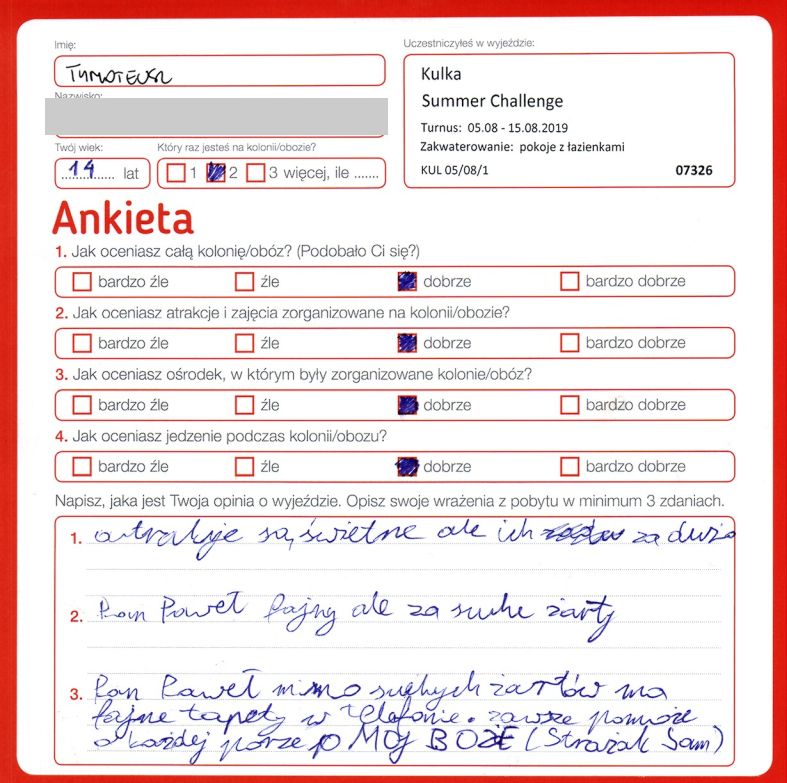 Imię:
Uczestniczyłeś w wyjeździe:
TYMOTEUSZ
Kulka
Summer Challenge
Nazwisko:
Turnus: 05.08 - 15.08.2019
Zakwaterowanie: pokoje z łazienkami
KUL 05/08/1 07326
Twój wiek: Który raz jesteś na kolonii/obozie?
14 lat 1 2 3 więcej, ile .......
Ankieta
1. Jak oceniasz całą kolonię/obóz? (Podobało Ci się?)
bardzo źle źle dobrze bardzo dobrze
2. Jak oceniasz atrakcje i zajęcia zorganizowane na kolonii/obozie?
bardzo źle źle dobrze bardzo dobrze
3. Jak oceniasz ośrodek, w którym były zorganizowane kolonie/obóz?
bardzo źle źle dobrze bardzo dobrze
4. Jak oceniasz jedzenie podczas kolonii/obozu?
bardzo źle źle dobrze bardzo dobrze
Napisz, jaka jest Twoja opinia o wyjeździe. Opisz swoje wrażenia z pobytu w minimum 3 zdaniach.
1. atrakcje są świetne ale ich za dużo
2. Pan Paweł fajny ale za suche żarty
3. Pan Paweł mimo suchych żartów ma
fajne tapety w telefonie. zawsze pomoże
o każdej porze O MÓJ BOŻE (Strażak Sam)